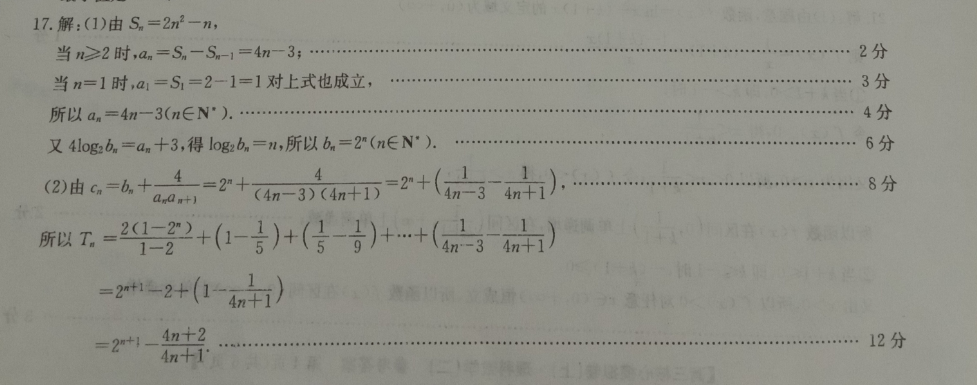 17.解:(1)由 Sₙ=2n²−n,
当 n≥2 时,aₙ=Sₙ−Sₙ₋₁=4n−3; 2 分
当 n=1 时,a₁=S₁=2−1=1 对上式也成立, 3 分
所以 aₙ=4n−3(n∈N*). 4 分
又 4log₂bₙ=aₙ+3,得 log₂bₙ=n,所以 bₙ=2ⁿ(n∈N*). 6 分
(2)由 cₙ=bₙ+4/(aₙaₙ₊₁)=2ⁿ+4/((4n−3)(4n+1))=2ⁿ+(1/(4n−3)−1/(4n+1)), 8 分
所以 Tₙ=2(1−2ⁿ)/(1−2)+(1−1/5)+(1/5−1/9)+⋯+(1/(4n−3)−1/(4n+1))
=2ⁿ⁺¹−2+(1−1/(4n+1))
=2ⁿ⁺¹−(4n+2)/(4n+1). 12 分